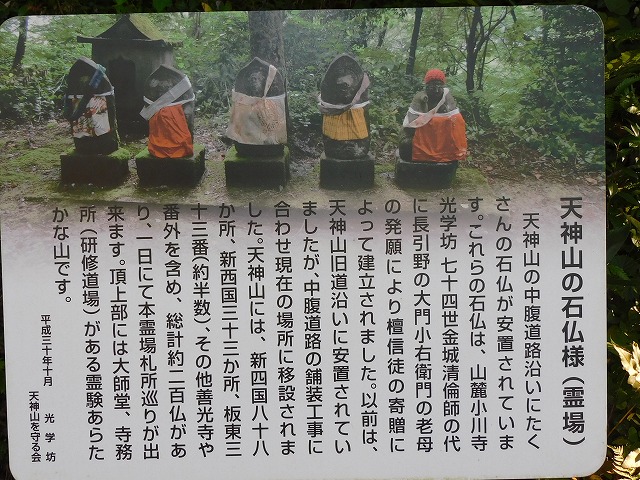 天神山の石仏様（霊場）
天神山の中腹道路沿いにたく
さんの石仏が安置されていま
す。これらの石仏は、山麓小川寺
光学坊 七十四世金城清倫師の代
に長引野の大門小右衛門の老母
の発願により檀信徒の寄贈に
よって建立されました。以前は、
天神山旧道沿いに安置されてい
ましたが、中腹道路の舗装工事に
合わせ現在の場所に移設されま
した。天神山には、新四国八十八
か所、新西国三十三か所、板東三
十三番（約半数）、その他善光寺や
番外を含め、総計約二百仏があ
り、一日にて本霊場札所巡りが出
来ます。頂上部には大師堂、寺務
所（研修道場）がある霊験あらた
かな山です。
平成三十年十月 光学坊
天神山を守る会